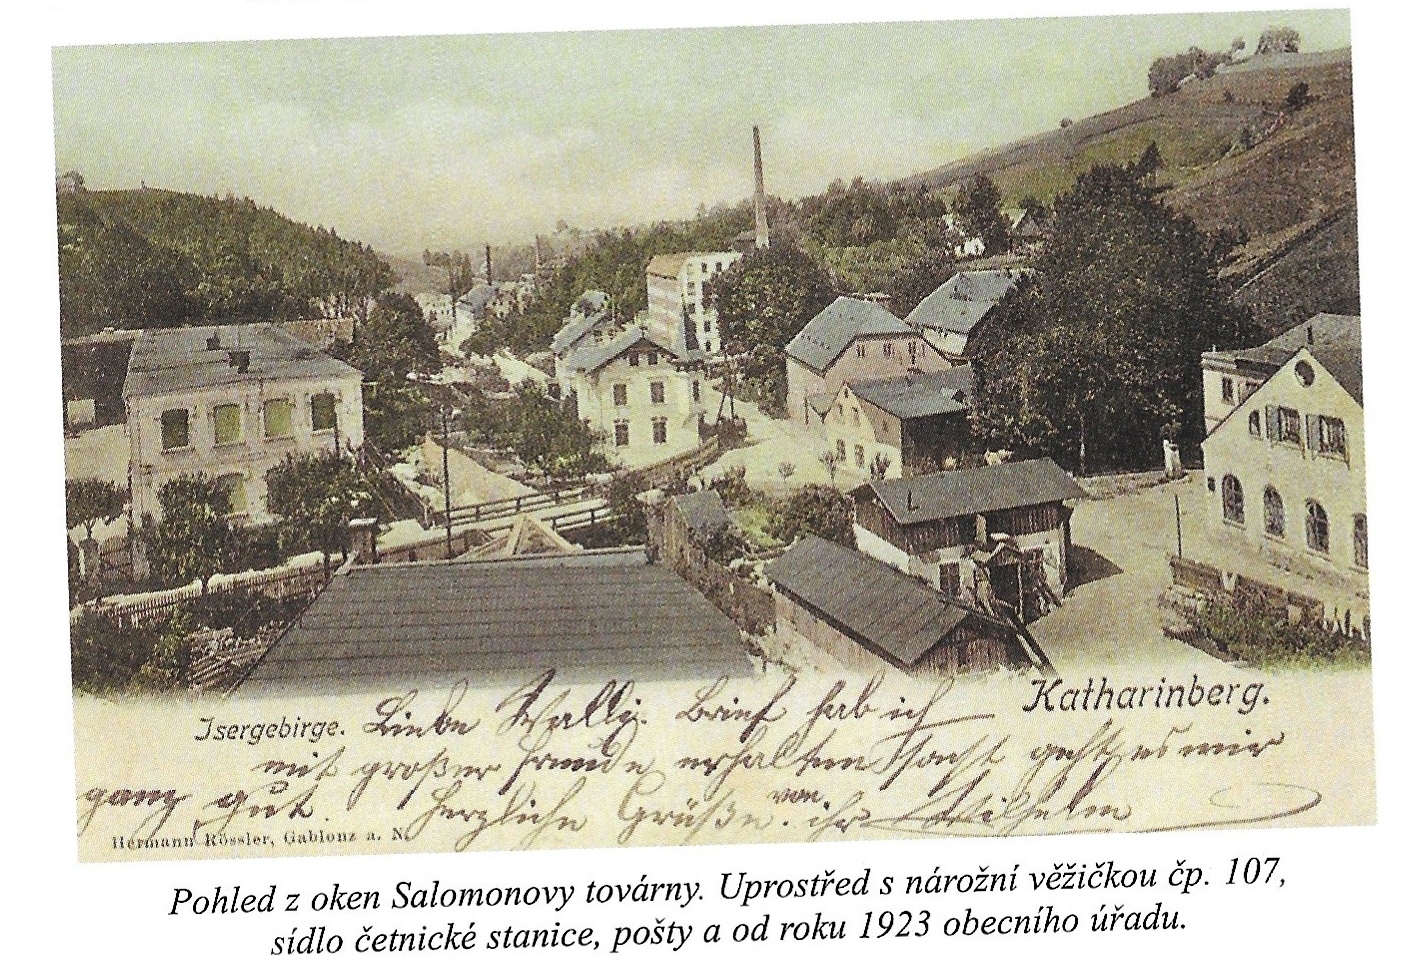 Katharinberg.
Isergebirge. Liebe Wally. Brief hab ich
mit großer Freude erhalten sonst geht es mir
ganz gut. Herzliche Grüße von ihr Wilhelm
Hermann Rössler, Gablonz a. N.
Pohled z oken Salomonovy továrny. Uprostřed s nárožní věžičkou čp. 107,
sídlo četnické stanice, pošty a od roku 1923 obecního úřadu.